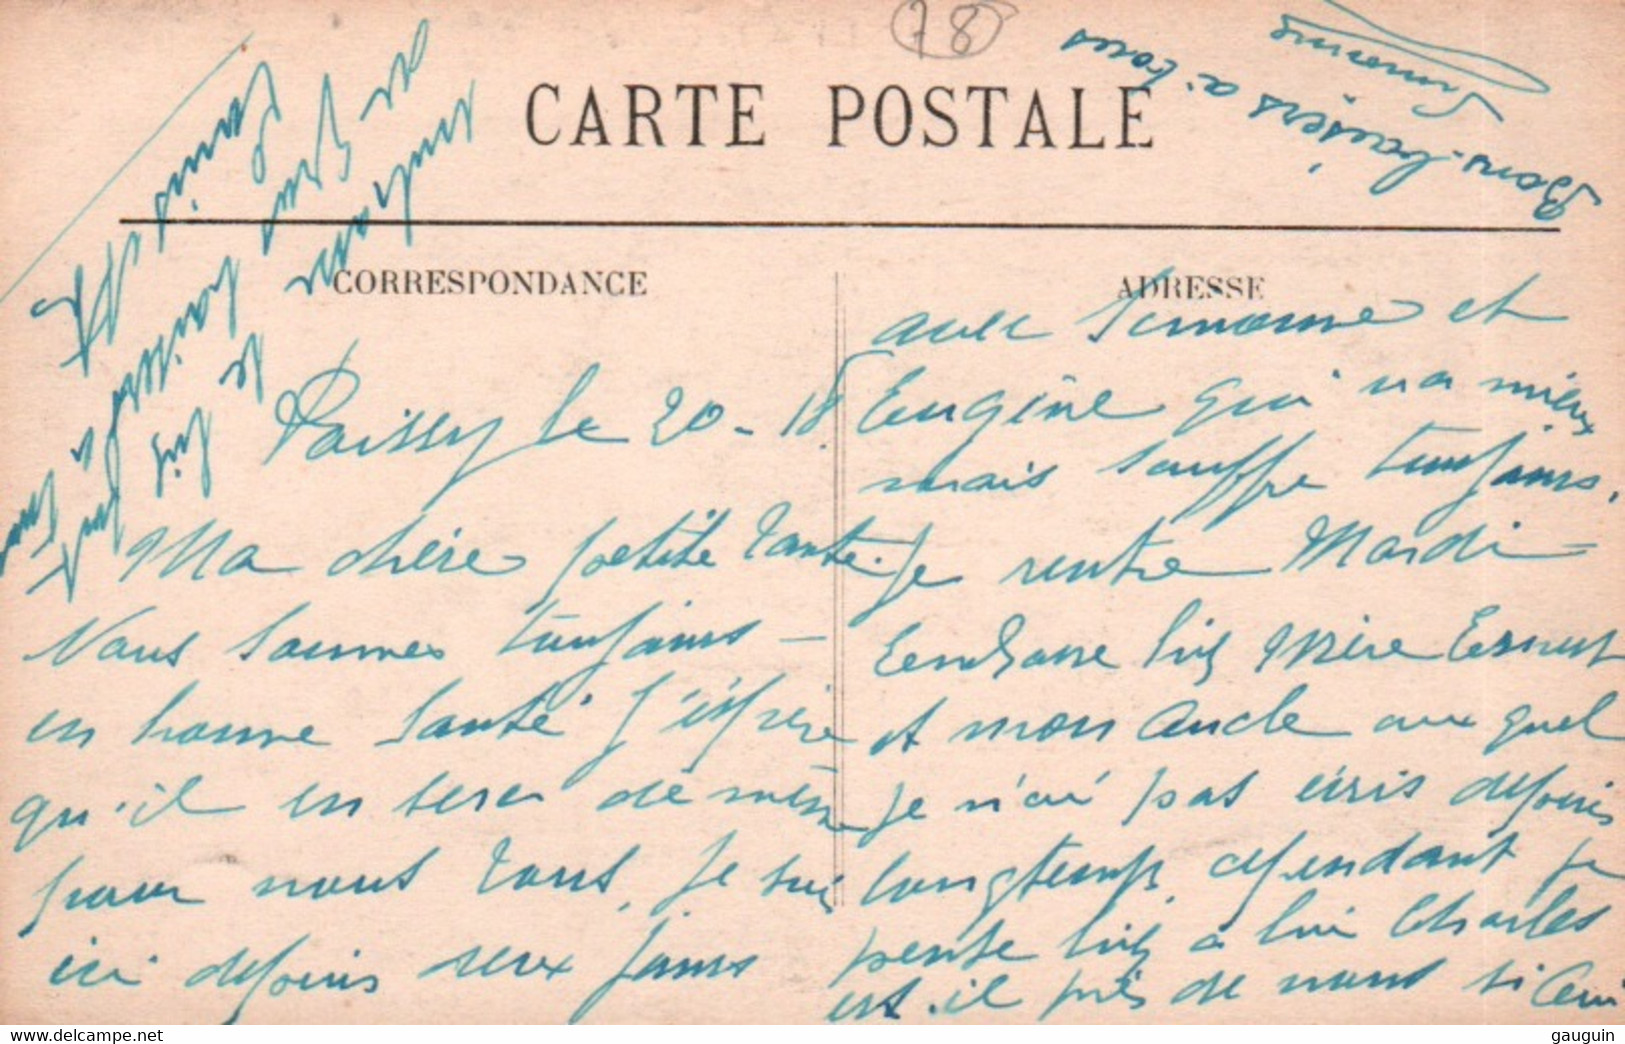 78
CARTE POSTALE
CORRESPONDANCE
ADRESSE
Poissy le 20-18
Ma chère petite tante.
Nous sommes toujours -
en bonne santé j'éspère
qu'il en sera de même
pour vous tous, je suis
ici depuis deux jours
avec Simonne et
Eugène qui va mieux
mais souffre toujours.
Je rentre Mardi -
Embrasse bien Mère Ernest
et mon oncle au quel
je n'ai pas écris depuis
longtemps cependant je
pense bien à lui Charles
est-il près de vous si oui
Bons baisers à tous
Simonne